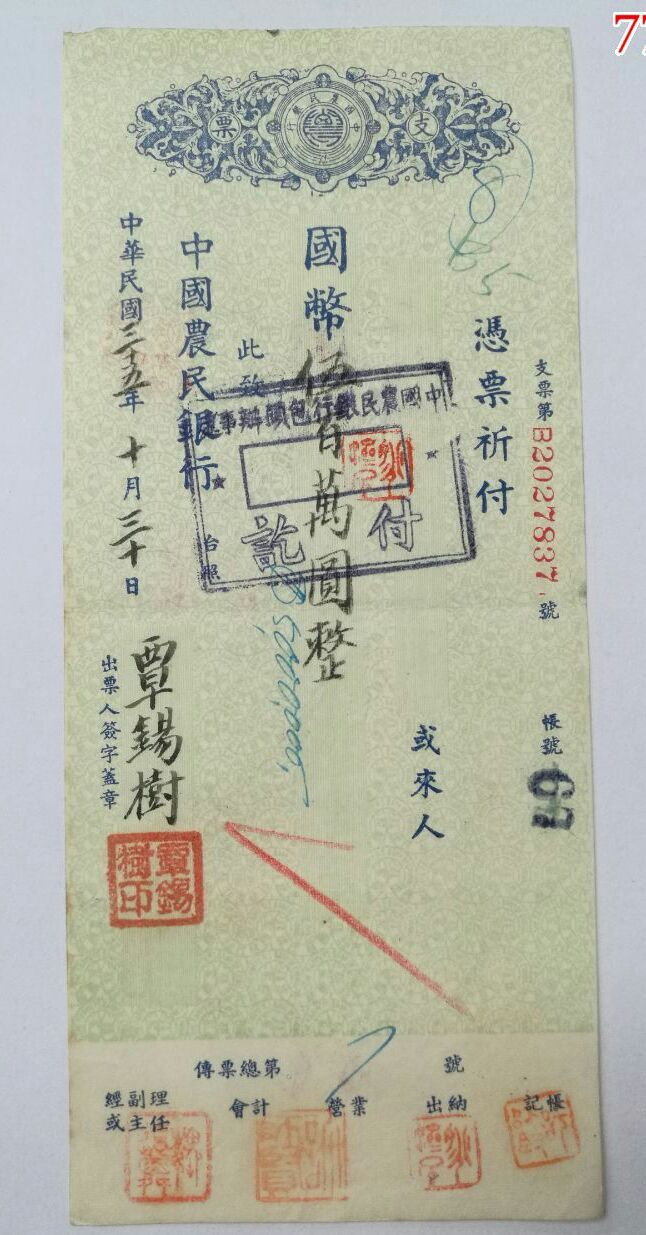 支票
中國農民銀行
支票第B2027837號
帳號 67
憑票祈付
或來人
國幣伍百萬圓整
5,000,000.
此致
中國農民銀行
台照
中華民國三十五年十月三十日
出票人簽字蓋章
覃錫樹
覃錫樹印
付訖
傳票總第 號
經副理或主任
會計
營業
出納
記帳